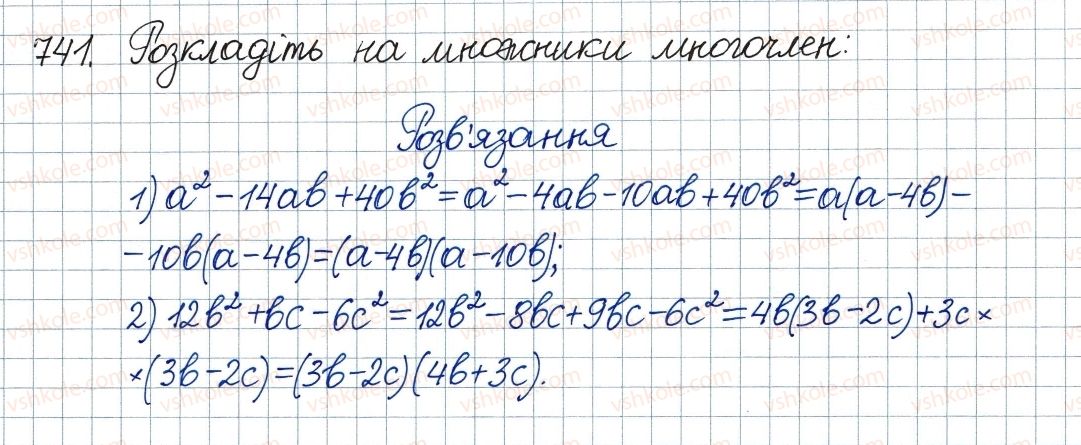 741. Розкладіть на множники многочлен:
Розв'язання
1) a² - 14ab + 40b² = a² - 4ab - 10ab + 40b² = a(a - 4b) -
- 10b(a - 4b) = (a - 4b)(a - 10b);
2) 12b² + bc - 6c² = 12b² - 8bc + 9bc - 6c² = 4b(3b - 2c) + 3c ×
× (3b - 2c) = (3b - 2c)(4b + 3c).